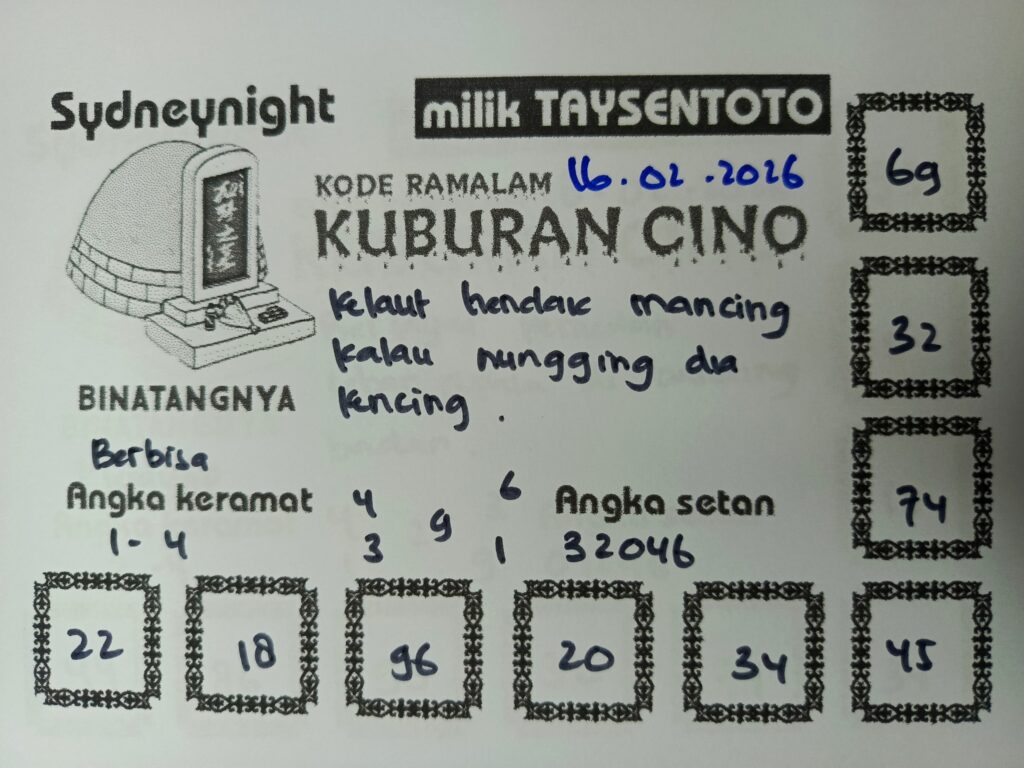 Sydneynight
milik TAYSENTOTO
KODE RAMALAM 16.02.2026
KUBURAN CINO
kelaut hendak mancing
kalau nungging dia
kencing .
BINATANGNYA
Berbisa
Angka keramat
1-4
4 6
9
3 1
Angka setan
32046
69
32
74
22 18 96 20 34 45